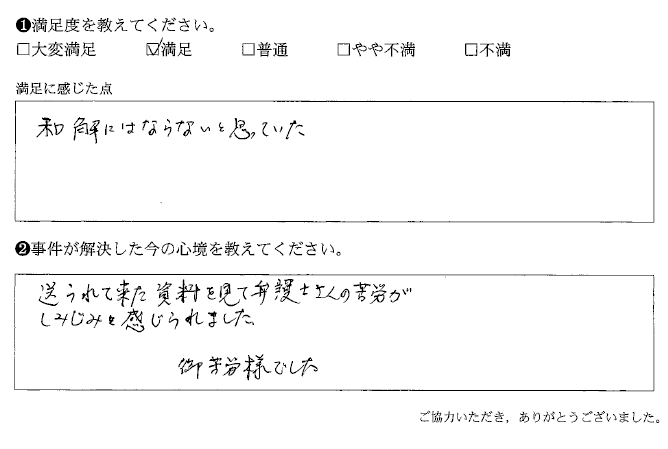 ❶満足度を教えてください。
□大変満足 ☑満足 □普通 □やや不満 □不満
満足に感じた点
和解にはならないと思っていた
❷事件が解決した今の心境を教えてください。
送られて来た資料を見て弁護士さんの苦労が
しみじみと感じられました。
御苦労様でした
ご協力いただき，ありがとうございました。